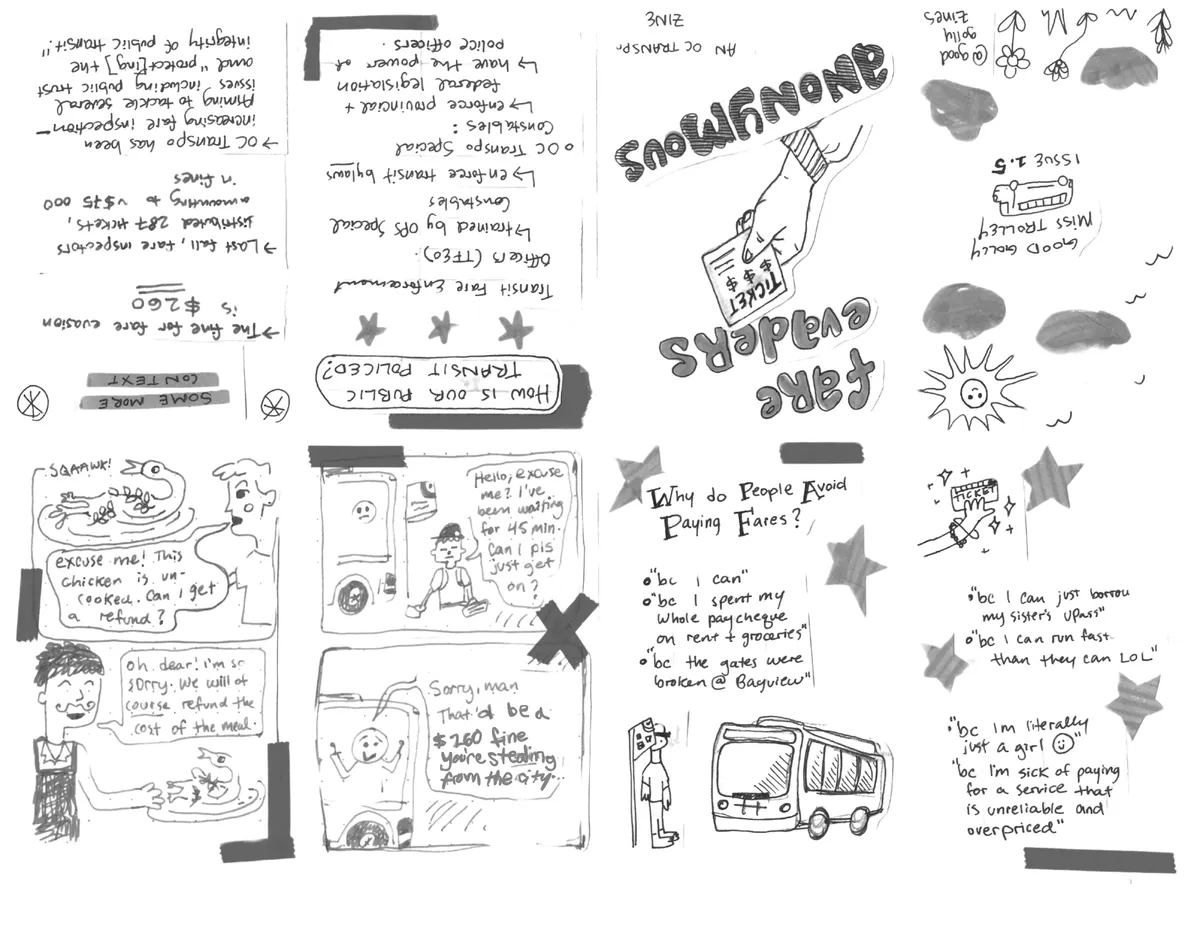 fare
evaders
TICKET
$ $ $
anonymous
AN OC TRANSPO
ZINE
HOW IS OUR PUBLIC
TRANSIT POLICED?
Transit Fare Enforcement
Officers (TFEO):
↳ trained by OPS Special
Constables
↳ enforce transit bylaws
o OC Transpo Special
Constables:
↳ enforce provincial +
federal legislation
↳ have the power of
police officers.
SOME MORE
CONTEXT
→ The fine for fare evasion
is $260
→ Last fall, fare inspectors
distributed 287 tickets,
amounting to ~$75 000
in fines
→ OC Transpo has been
increasing fare inspection
Aiming to tackle several
issues including public trust
and "protect[ing] the
integrity of public transit".
SQAAWK!
excuse me! This
chicken is un-
cooked. Can I get
a refund?
oh dear! I'm so
sorry. We will of
course refund the
cost of the meal.
Hello, excuse
me? I've
been waiting
for 45 min.
Can I pls
just get
on?
Sorry, man
That'd be a
$260 fine
you're stealing
from the city...
Why do People Avoid
Paying Fares?
o "bc I can"
o "bc I spent my
whole paycheque
on rent + groceries"
o "bc the gates were
broken @ Bayview"
TICKET
o "bc I can just borrow
my sister's UPass"
o "bc I can run fast
than they can LOL"
"bc I'm literally
just a girl ☺"
"bc I'm sick of paying
for a service that
is unreliable and
overpriced"
GOOD GOLLY
MISS TROLLEY
ISSUE 1.5
@good
golly
zines